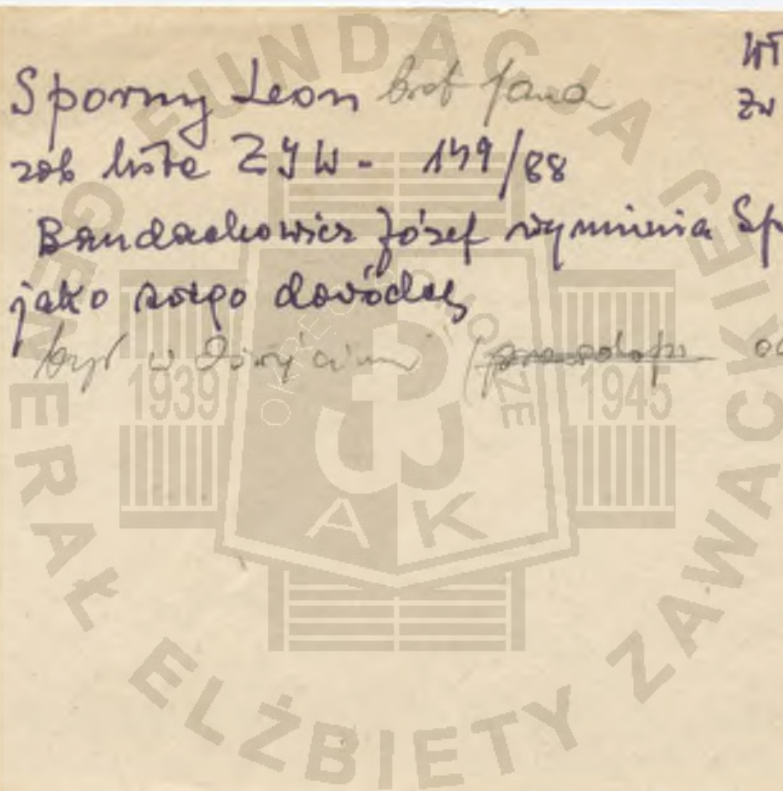 Sporny Leon brat Jana
WŁ
zw
zob lista ZJW - 149/88
Bandachowicz Józef wymienia Sp
jako swego dowódcę
był w Oświęcimiu
FUNDACJA GENERAŁ ELŻBIETY ZAWACKIEJ
OKRĘG POMORZE
1939
1945
AK